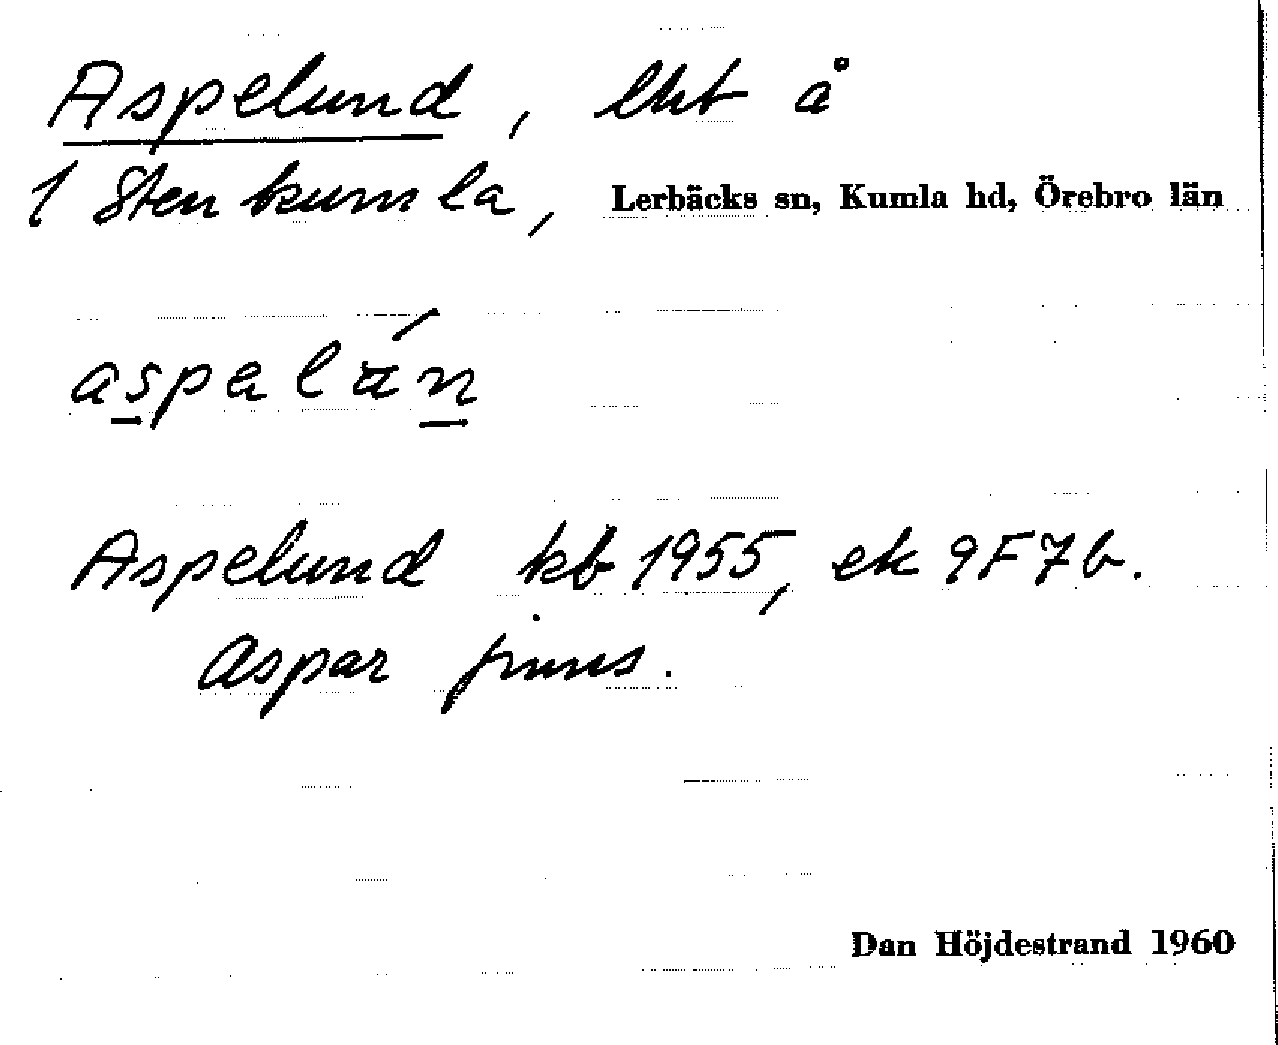 Aspelund, lht å
1 Stenkumla, Lerbäcks sn, Kumla hd, Örebro län
aspalán
Aspelund kb 1955, ek 9F7b.
Aspar finns.
Dan Höjdestrand 1960